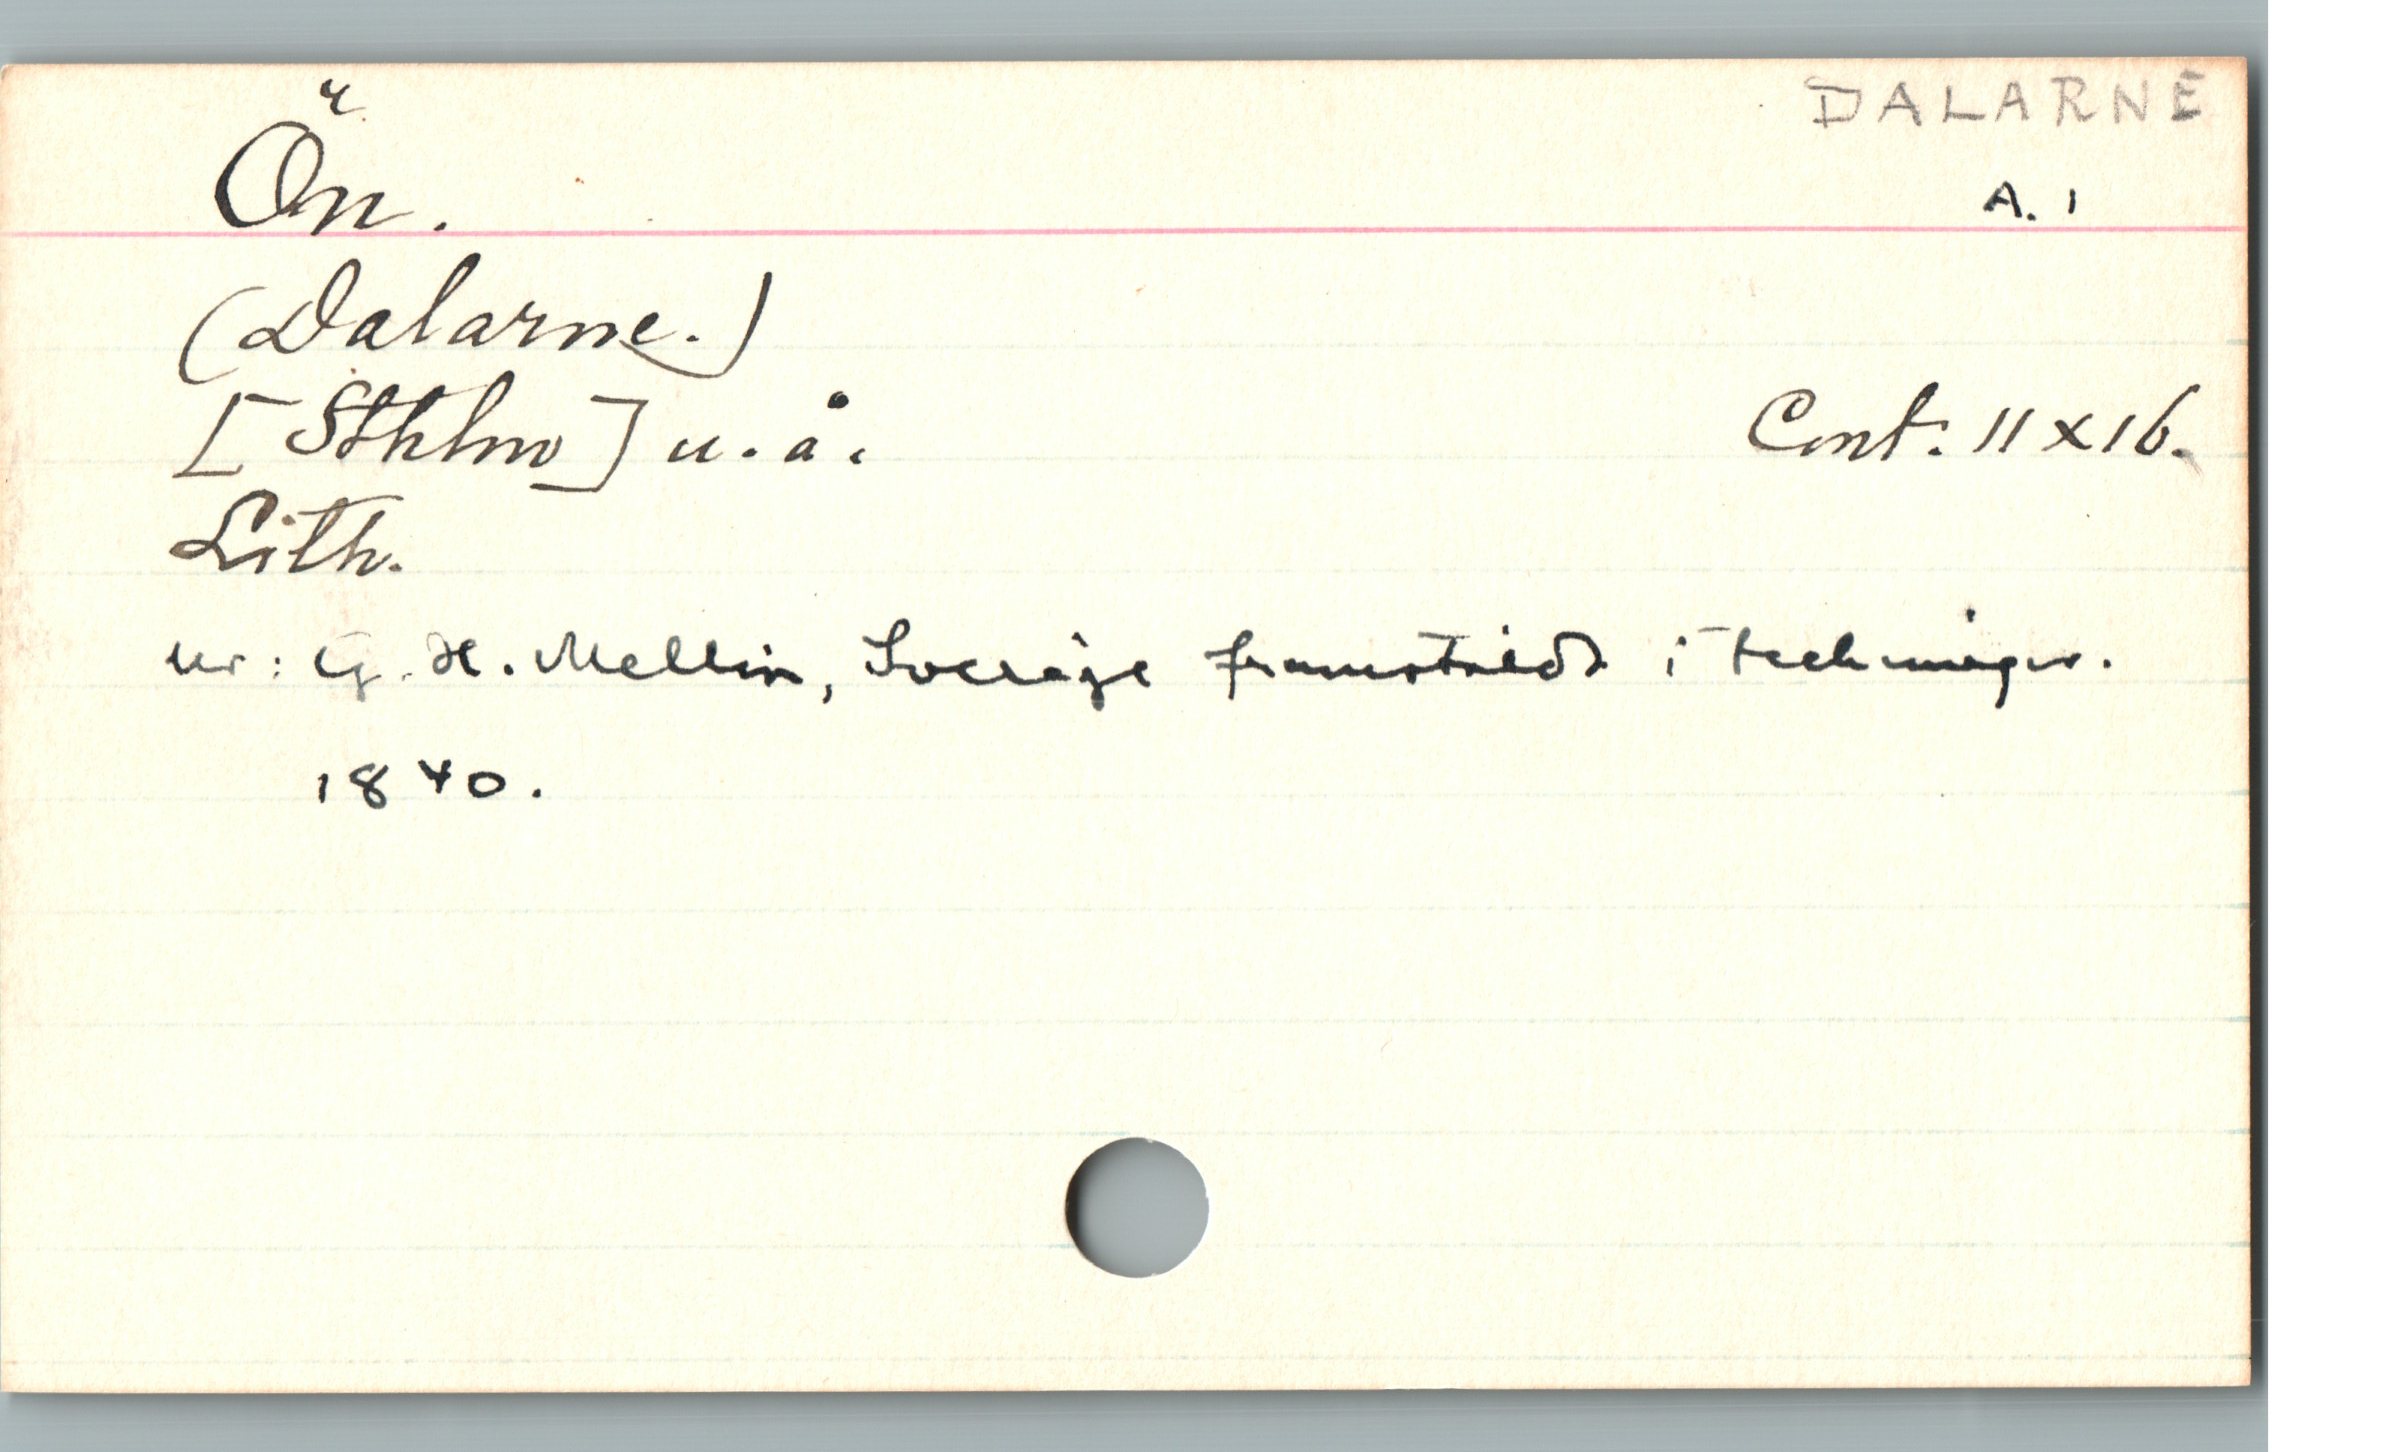 DALARNE
Ön.
A. 1
(Dalarne.)
[Sthlm] u. å.
Cont. 11 x 16.
Lith.
ur: G. H. Mellin, Sverige framstäldt i teckningar.
1840.